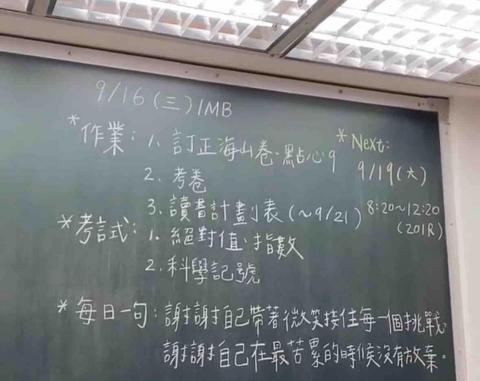 9/16(三) 1MB
*作業: 1. 訂正海山卷.點心9
2. 考卷
3. 讀書計劃表(~9/21)
*Next:
9/19(六)
8:20~12:20
(201R)
*考試: 1. 絕對值.指數
2. 科學記號
*每日一句: 謝謝自己帶著微笑接住每一個挑戰,
謝謝自己在最苦累的時候沒有放棄。